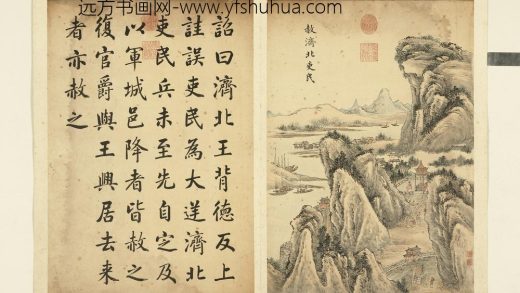 远方书画网- www.yfshuhua.com
赦濟北吏民
詔曰濟北王背德反上
詿誤吏民為大逆濟北
吏民兵未至先自定及
以軍城邑降者皆赦之
復官爵與王興居去來
者亦赦之